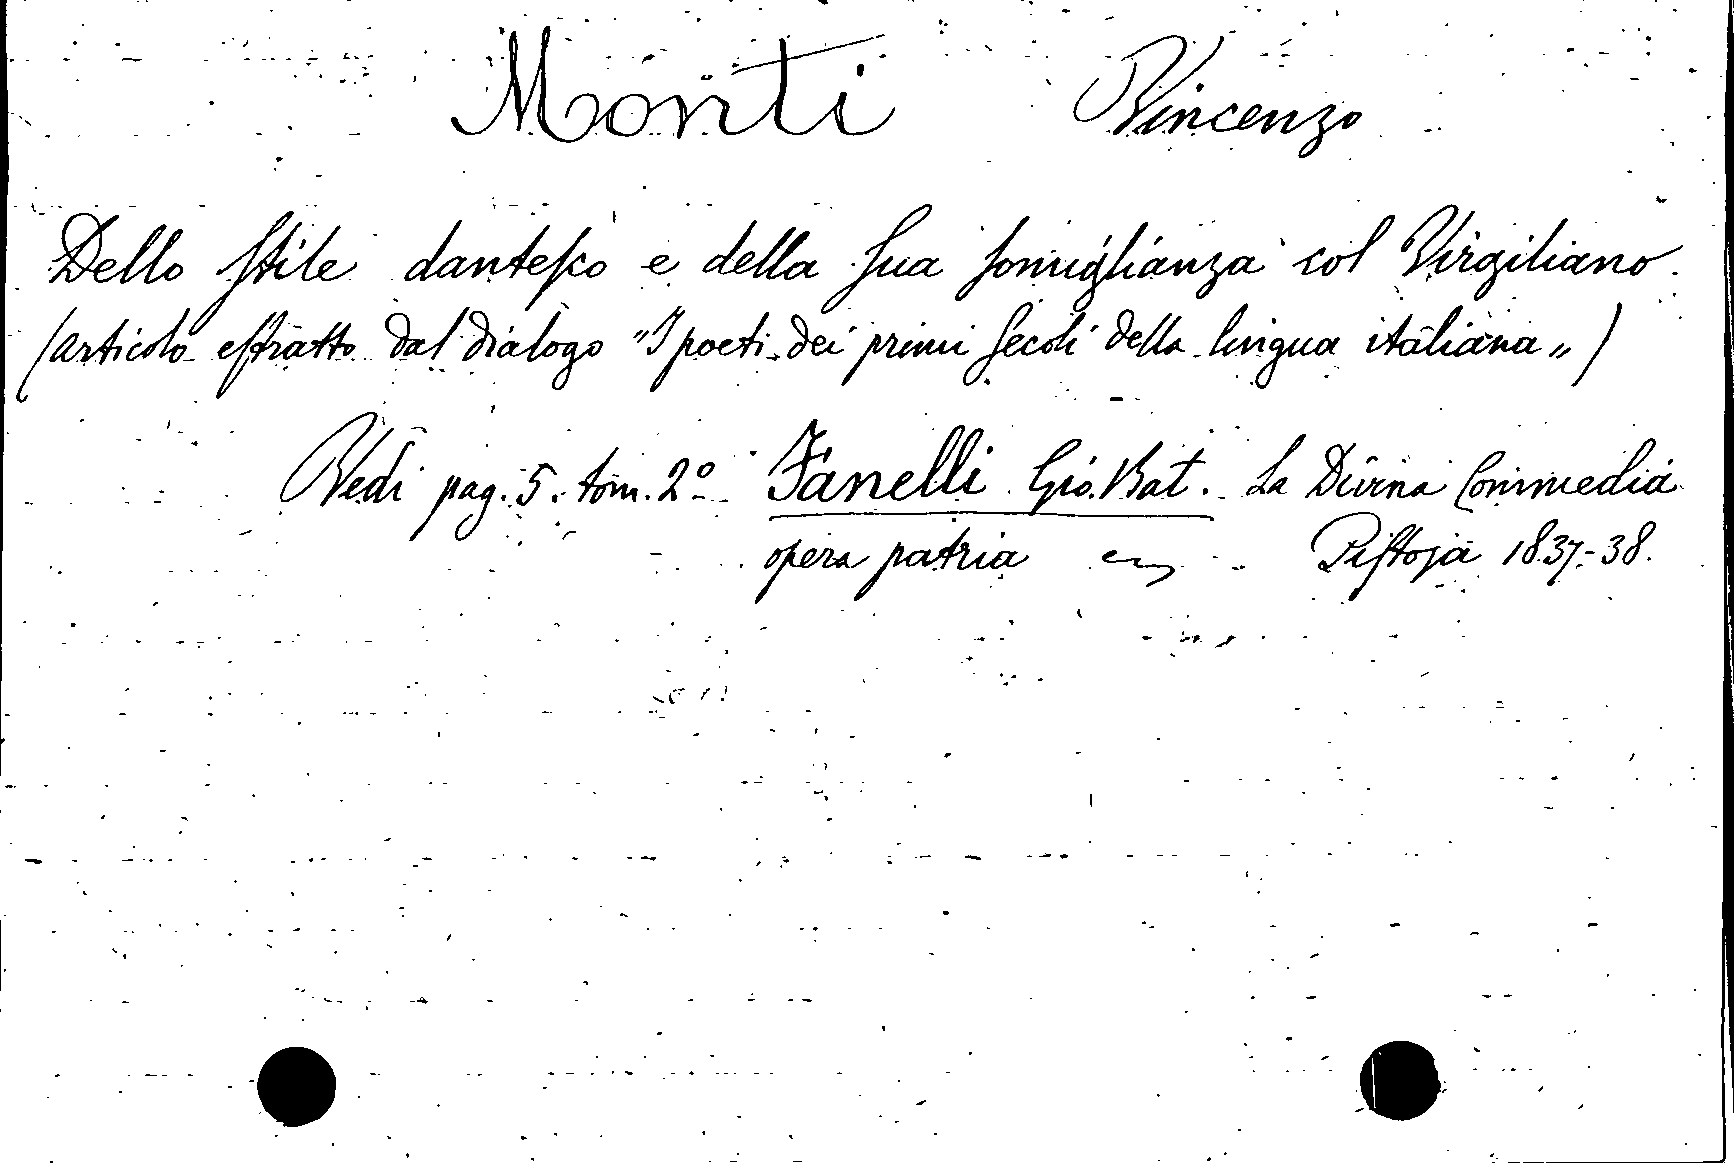 Monti Vincenzo
Dello ſtile danteſco e della ſua ſomiglianza col Virgiliano.
(articolo eſtratto dal dialogo "I poeti dei primi ſecoli della lingua italiana„)
Vedi pag. 5. tom. 2º Fanelli Gio. Bat. La Divina Commedia
opera patria Piſtoja 1837-38.